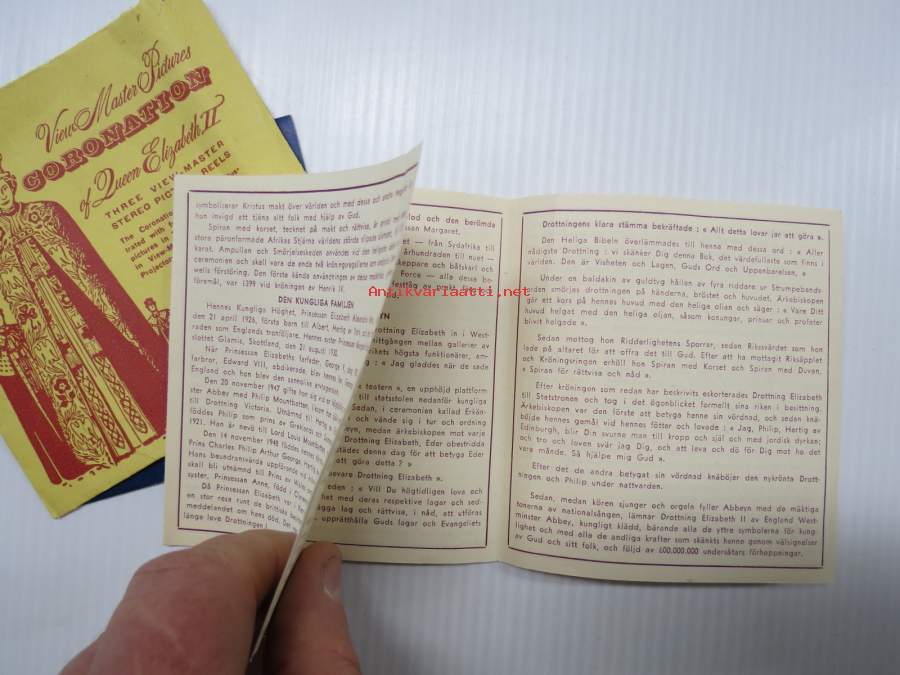 View-Master Pictures
CORONATION
of Queen Elizabeth II
THREE VIEW-MASTER
STEREO PICTURE REELS
The Coronation
trated with
pictures in
in View-Mas
Projector
symboliserar Kristus makt över världen och med dessa och andra
hon invigd att tjäna sitt folk med hjälp av Gud.
Spiran med korset, tecknet på makt och rättvisa, är
stora päronformade Afrikas Stjärna världens största slipade
karat. Ampullen och Smörjelseskeden användes vid den
ceremonien och skall vara de enda två kröningsregalierna som
wells förstöring. Den första kända användningen av dessa
föremål, var 1399 vid kröningen av Henrik IV.
DEN KUNGLIGA FAMILJEN
Hennes Kungliga Höghet, Prinsessan Elizabeth
den 21 april 1926, första barn till Albert, Hertig av
raden som Englands tronföljare. Hennes syster Prinsessan
slottet Glamis, Skottland, den 21 augusti 1930.
När Prinsessan Elizabeths farfader, George V, dog
farbror, Edward VIII, abdikerade, blev hennes far
England och hon blev den sannolika arvtagaren.
Den 20 november 1947 gifte hon sig
ster Abbey med Philip Mountbatten,
till Drottning Victoria. Utnämnd till Hertig
föddes Philip som prins av Grekland
1921. Han är nevö till Lord Louis
Den 14 november 1948 föddes
Prins Charles Philip Arthur George,
Hans beundransvärda uppförande
skall bli utnämnd till Prins av Wales
syster, Prinsessan Anne, född i
Då Prinsessan Elizabeth var i
en stor resa runt de brittiska
meddelandet om hans död. Den
länge leve Drottningen !
lod och den berömda
ssan Margaret,
et — från Sydafrika till
århundraden till nuet —
keppare och båtskarl och
Force — alla dessa be-
festtåg av prakt, fest
YN
rottning Elizabeth in i West-
mittgången mellan gallerier av
rikets högsta funktionärer, am-
: « Jag gladdes när de sade
teatern », en upphöjd plattform
till statsstolen nedanför kungliga
Sedan, i ceremonien kallad Erkän-
och vände sig i tur och ordning
eyn, medan ärkebiskopen mot varje
Drottning Elizabeth, Eder obestridda
lädes denna dag för att betyga Eder
att göra detta ? »
evare Drottning Elizabeth ».
eden : « Vill Du högtidligen lova och
het med deras respektive lagar och sed-
gga lag och rättvisa, i nåd, att utföras
upprätthålla Guds lagar och Evangeliets
Drottningens klara stämma bekräftade : « Allt detta lovar jar att göra ».
Den Heliga Bibeln överlämmades till henne med dessa ord : « Aller
nådigste Drottning : vi skänker Dig denna Bok, det värdefullaste som finns i
världen. Där är Visheten och Lagen, Guds Ord och Uppenbarelsen, »
Under en baldakin av guldtyg hållen av fyra riddare ur Strumpebands-
orden smörjes drottningen på händerna, bröstet och huvudet. Ärkebiskopen
gör ett kors på hennes huvud med den heliga oljan och säger : « Vare Ditt
huvud helgat med den heliga oljan, såsom konungar, prinsar och profeter
blivit helgade ».
Sedan mottog hon Ridderlighetens Sporrar, sedan Rikssvärdet som hon
lade på altaret för att offra det till Gud. Efter att ha mottagit Riksäpplet
och Kröningsringen erhöll hon Spiran med Korset och Spiran med Duvan,
« Spiran för rättvisa och nåd ».
Efter kröningen som redan har beskrivits eskorterades Drottning Elizabeth
till Statstronen och tog i det ögonblicket formellt sina riken i besittning.
Ärkebiskopen var den förste att betyga henne sin vördnad, och sedan knä-
böjde hennes gemål vid hennes fötter och lovade : « Jag, Philip, Hertig av
Edinburgh, blir Din svurne man till kropp och själ och med jordisk dyrkan;
och tro och loven svär jag Dig, och att leva och dö för Dig mot ho det
vara månde. Så hjälpe mig Gud ».
Efter det de andra betygat sin vördnad knäböjer den nykrönta Drott-
ningen och Philip under nattvarden.
Sedan, medan kören sjunger och orgeln fyller Abbeyn med de mäktiga
tonerna av nationalsången, lämnar Drottning Elizabeth II av England West-
minster Abbey, kungligt klädd, bärande alla de yttre symbolerna för kung-
lighet och med alla de andliga krafter som skänkts henne genom välsignelser
av Gud och sitt folk, och följd av 600.000.000 undersåtars förhoppningar.
Antikvariaatti.net